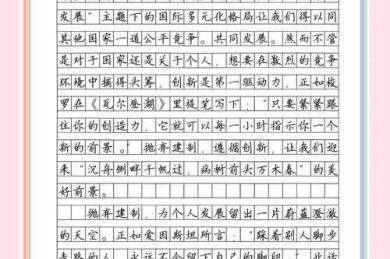 发展”主题下的国际多元化格局让我们得以同
其他国家一道公平竞争。共同发展。然而不管
是对于国家还是关于个人,想要在激烈的竞争
环境中摘得头筹,创新是第一驱动力,正如梭
罗在《瓦尔登湖》里提笔写下:“只要紧紧跟
住你的创造力,它就可以每一小时指示你一个
新的前景。”抛弃建制,遵循创新,让我们迎
来“沉舟侧畔千帆过,病树前头万木春”的美
好前景。
抛弃建制,为个人发展留出一片蔚蓝澄澈
的天空。正如爱因斯坦所言:“踩着别人脚步
走路的人,永远不会留下自己的脚印。”此话